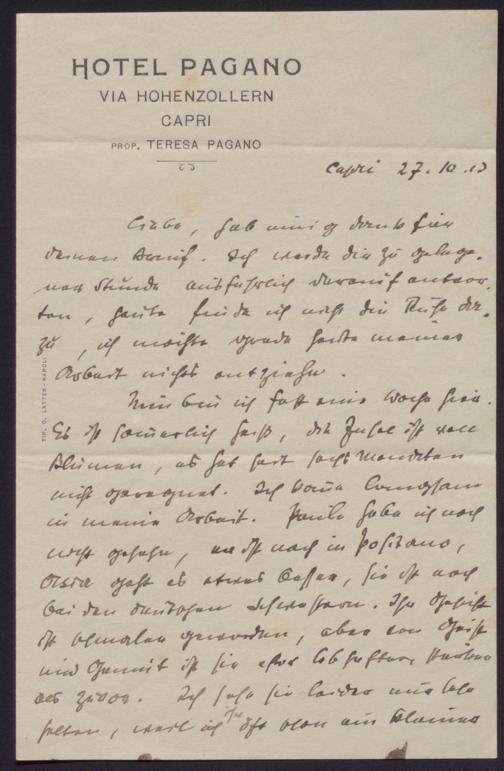 HOTEL PAGANO
VIA HOHENZOLLERN
CAPRI
PROP. TERESA PAGANO
Capri 27. 10. 13
Liebe, hab innig dank für
deinen Brief. Ich werde dir zu gelege-
ner Stunde ausführlich darauf antwor-
ten, heute finde ich nicht die Ruhe da-
zu, ich möchte grade heute meiner
Arbeit nichts entziehn.
Nun bin ich fast eine Woche hier.
Es ist sommerlich heiß, die Insel ist voll
Blumen, es hat seit sechs Monaten
nicht geregnet. Ich komme langsam
in meine Arbeit. Paul habe ich noch
nicht gesehn, er ist noch in Positano,
geht es etwas besser, sie ist noch
bei den deutschen Schwestern. Ihr Gesicht
ist schmaler geworden, aber von Geist
und Gemüt ist sie eher lebhafter
als zuvor. Ich sehe sie leider nur sehr
selten, weil ich oft oben ein kleines
TIP. G. LATTES - NAPOLI